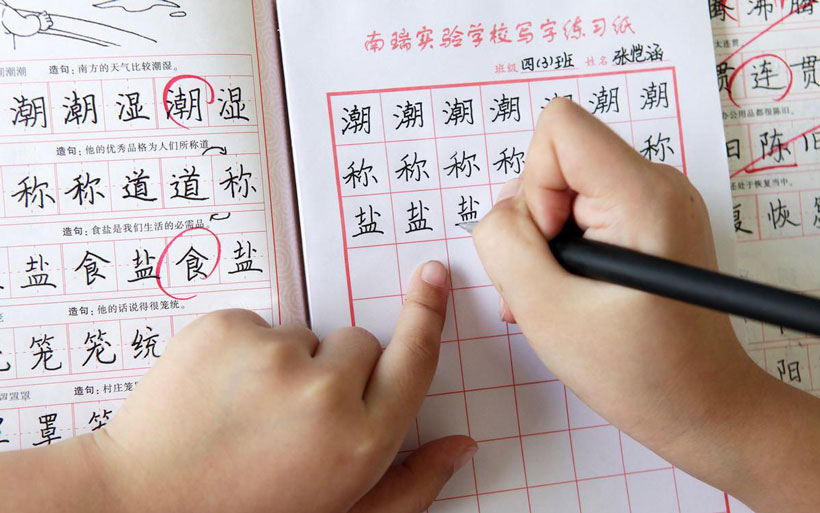 潮潮潮 造句：南方的天气比较潮湿。
潮潮湿潮湿
造句：他的优秀品格为人们所称道
称称道道称
造句：食盐是我们生活的必需品。
盐食盐食盐
造句：他的话说得很笼统。
笼笼统
造句：村庄笼
罩罩罩
罩
南瑞实验学校写字练习纸
班级 四(3)班 姓名 张恺涵
潮潮潮潮潮潮潮
称称称称称
盐盐盐
沸腾
连贯
贯连贯
办公用品都很陈旧。
旧陈旧
还处于恢复当中。
复恢
阳